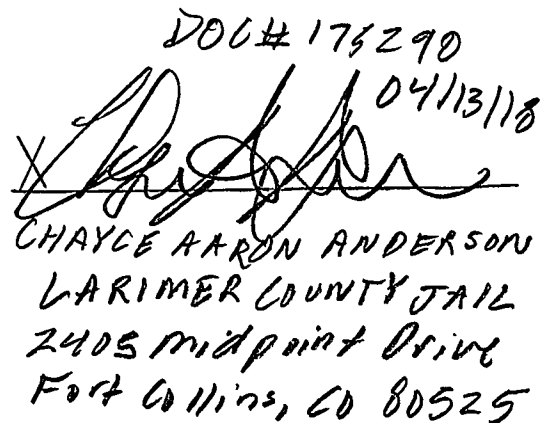 DOC# 175290
04/13/18
X
CHAYCE AARON ANDERSON
LARIMER COUNTY JAIL
2405 midpoint Drive
Fort Collins, CO 80525